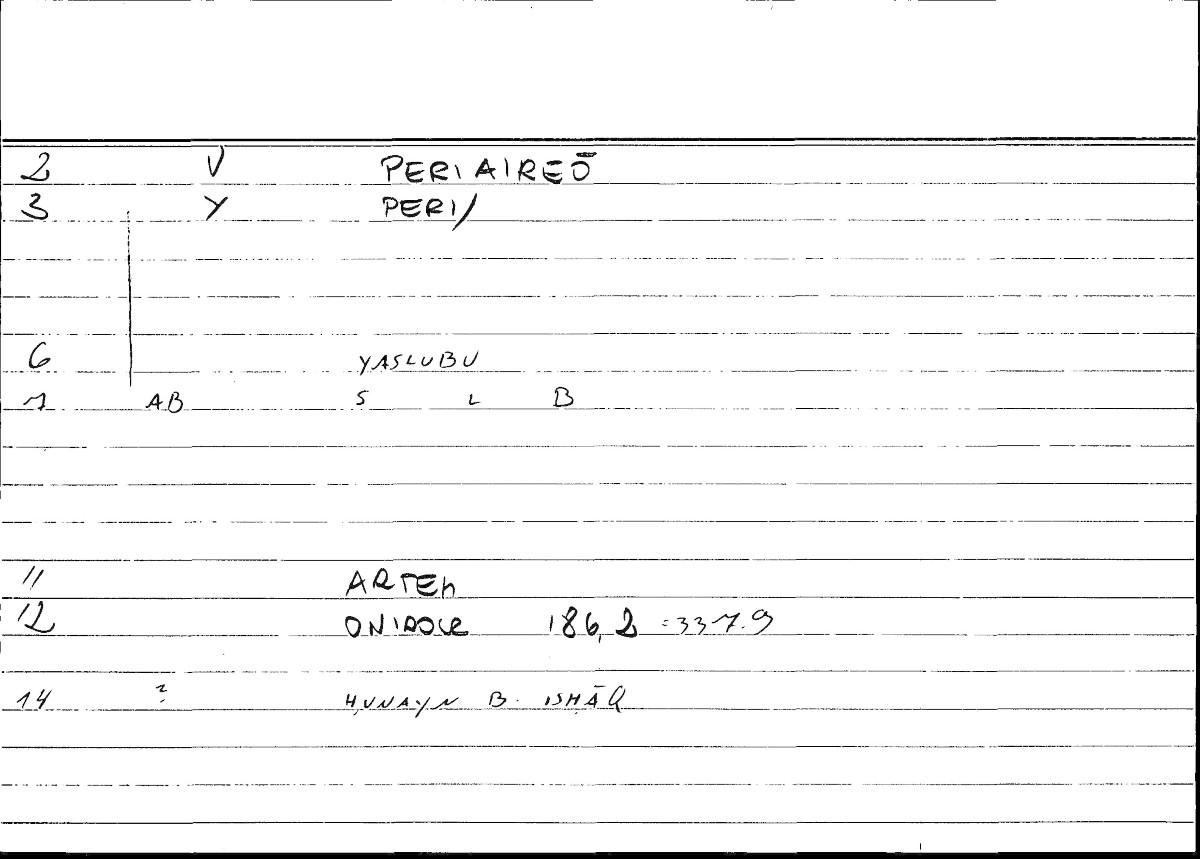 2 V PERIAIREŌ
3 Y PERI/
6 YASLUBU
7 AB S L B
11 ARTEM
12 ONIROCR 186,2 =337.9
14 ? ḤUNAYN B. ISḤĀQ